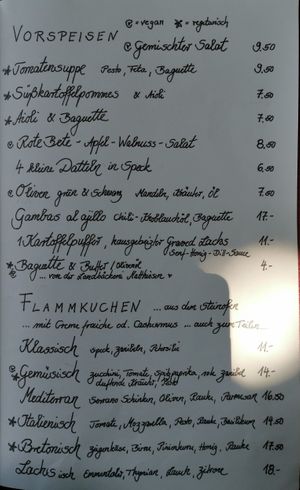 © = vegan * = vegetarisch
VORSPEISEN
© Gemischter Salat 9.50
* Tomatensuppe Pesto, Feta, Baguette 9.50
* Süßkartoffelpommes & Aioli 7.50
* Aioli & Baguette 7.50
© Rote Bete - Apfel - Walnuss - Salat 8,50
4 kleine Datteln in Speck 6,50
© Oliven grün & Schwarz Mandeln, Kräuter, Öl 7.50
Gambas al ajillo Chili - Knoblauchöl, Baguette 17.-
1 Kartoffelpuffer, hausgebeizter Graved Lachs 11.-
Senf-Honig-Dill-Sauce
* Baguette & Butter / Olivenöl 4.-
© ... von der Landbäckerei Matthiesen ♥
FLAMMKUCHEN ... aus dem Steinofen
... mit Creme fraiche od. Cashewmus ... auch zum Teilen...
Klassisch Speck, Zwiebeln, Petersilie 11.-
©* Gemüsisch Zucchini, Tomate, Spitzpaprika, rote Zwiebel 14.-
duftende Kräuter, Pesto
Mediterran Serrano Schinken, Oliven, Rauke, Parmesan 16,50
* Italienisch Tomate, Mozzarella, Pesto, Rauke, Basilikum 14.50
* Bretonisch Ziegenkäse, Birne, Pinienkerne, Honig, Rauke 17.50
Lachsisch Emmentaler, Thymian, Lauch, Zitrone 18.-